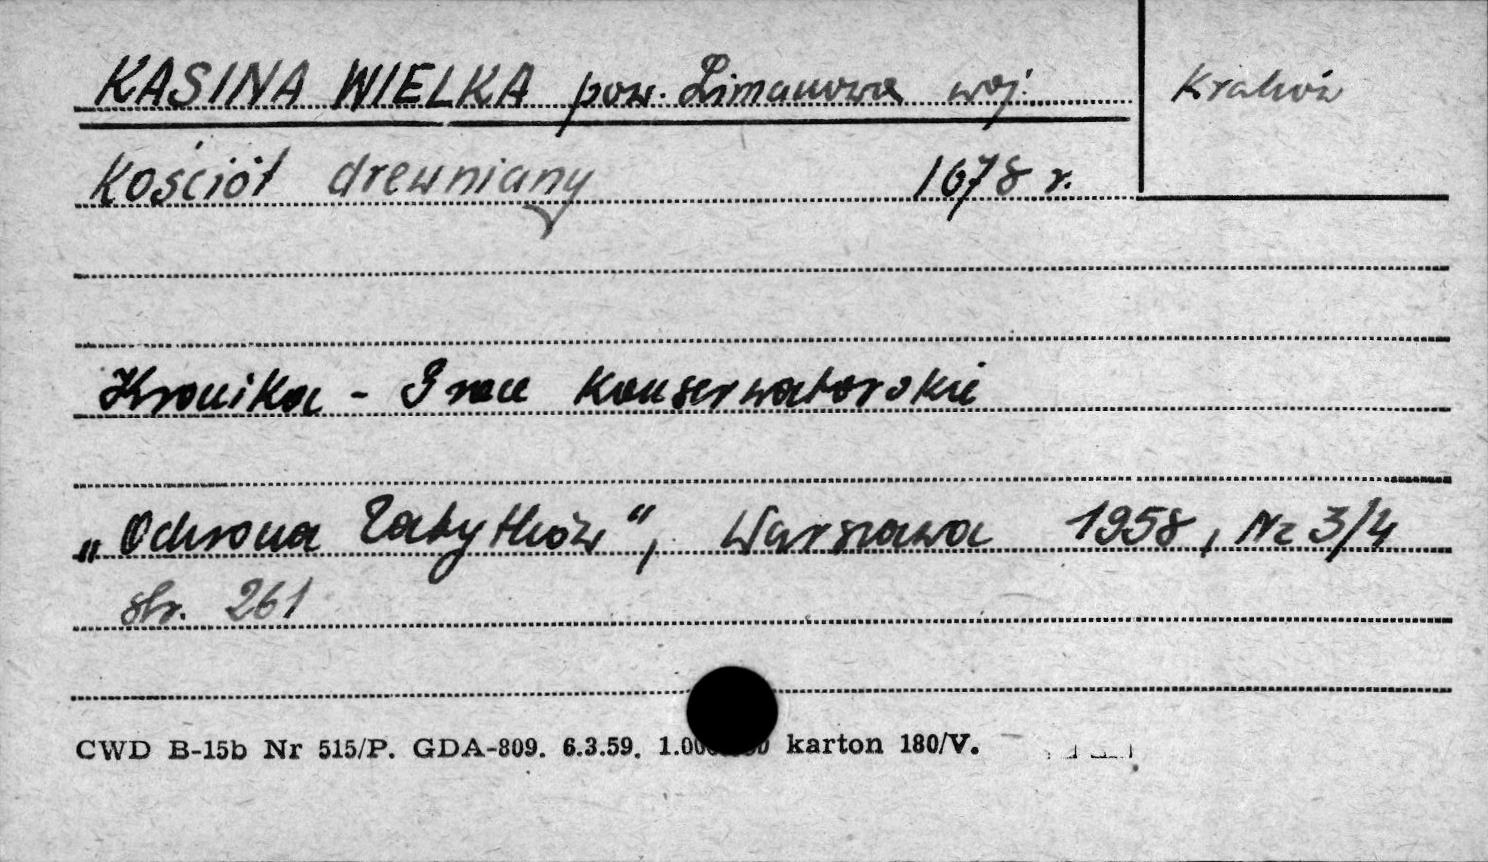 KASINA WIELKA pow. Limanowa woj. Kraków
Kościół drewniany 1678 r.
Kronika - Prace Konserwatorskie
„Ochrona Zabytków", Warszawa 1958, Nr 3/4
str. 261
CWD B-15b Nr 515/P. GDA-809. 6.3.59. karton 180/V.